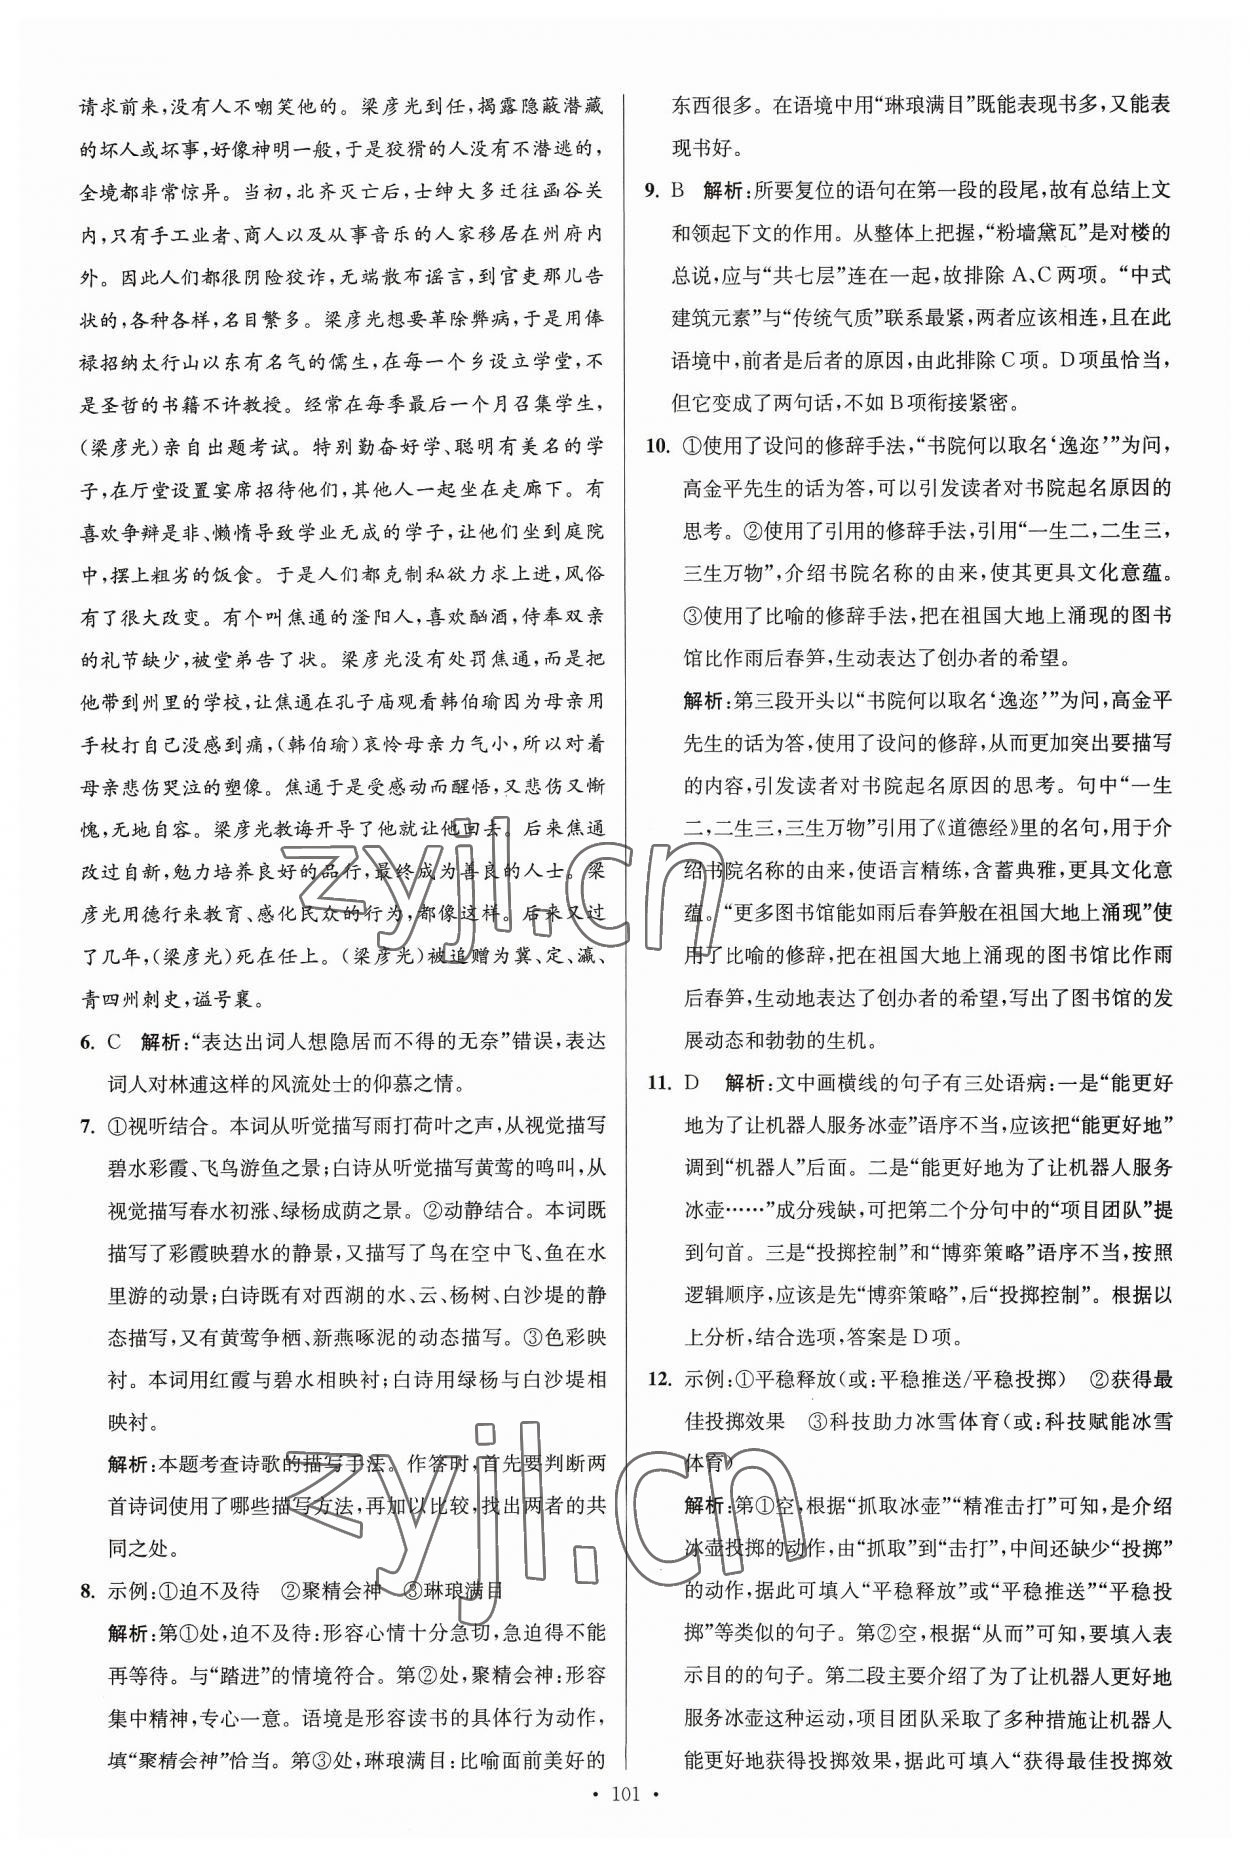 请求前来,没有人不嘲笑他的。梁彦光到任,揭露隐蔽潜藏
的坏人或坏事,好像神明一般,于是狡猾的人没有不潜逃的,
全境都非常惊异。当初,北齐灭亡后,士绅大多迁往函谷关
内,只有手工业者、商人以及从事音乐的人家移居在州府内
外。因此人们都很阴险狡诈,无端散布谣言,到官吏那儿告
状的,各种各样,名目繁多。梁彦光想要革除弊病,于是用俸
禄招纳太行山以东有名气的儒生,在每一个乡设立学堂,不
是圣哲的书籍不许教授。经常在每季最后一个月召集学生,
(梁彦光)亲自出题考试。特别勤奋好学、聪明有美名的学
子,在厅堂设置宴席招待他们,其他人一起坐在走廊下。有
喜欢争辩是非、懒惰导致学业无成的学子,让他们坐到庭院
中,摆上粗劣的饭食。于是人们都克制私欲力求上进,风俗
有了很大改变。有个叫焦通的滏阳人,喜欢酗酒,侍奉双亲
的礼节缺少,被堂弟告了状。梁彦光没有处罚焦通,而是把
他带到州里的学校,让焦通在孔子庙观看韩伯瑜因为母亲用
手杖打自己没感到痛,(韩伯瑜)哀怜母亲力气小,所以对着
母亲悲伤哭泣的塑像。焦通于是受感动而醒悟,又悲伤又惭
愧,无地自容。梁彦光教诲开导了他就让他回去。后来焦通
改过自新,勉力培养良好的品行,最终成为善良的人士。梁
彦光用德行来教育、感化民众的行为,都像这样。后来又过
了几年,(梁彦光)死在任上。(梁彦光)被追赠为冀、定、瀛、
青四州刺史,谥号襄。
6. C 解析:“表达出词人想隐居而不得的无奈”错误,表达
词人对林逋这样的风流处士的仰慕之情。
7. ①视听结合。本词从听觉描写雨打荷叶之声,从视觉描写
碧水彩霞、飞鸟游鱼之景;白诗从听觉描写黄莺的鸣叫,从
视觉描写春水初涨、绿杨成荫之景。②动静结合。本词既
描写了彩霞映碧水的静景,又描写了鸟在空中飞、鱼在水
里游的动景;白诗既有对西湖的水、云、杨树、白沙堤的静
态描写,又有黄莺争栖、新燕啄泥的动态描写。③色彩映
衬。本词用红霞与碧水相映衬;白诗用绿杨与白沙堤相
映衬。
解析:本题考查诗歌的描写手法。作答时,首先要判断两
首诗词使用了哪些描写方法,再加以比较,找出两者的共
同之处。
8. 示例:①迫不及待 ②聚精会神 ③琳琅满目
解析:第①处,迫不及待:形容心情十分急切,急迫得不能
再等待。与“踏进”的情境符合。第②处,聚精会神:形容
集中精神,专心一意。语境是形容读书的具体行为动作,
填“聚精会神”恰当。第③处,琳琅满目:比喻面前美好的
东西很多。在语境中用“琳琅满目”既能表现书多,又能表
现书好。
9. B 解析:所要复位的语句在第一段的段尾,故有总结上文
和领起下文的作用。从整体上把握,“粉墙黛瓦”是对楼的
总说,应与“共七层”连在一起,故排除A、C两项。“中式
建筑元素”与“传统气质”联系最紧,两者应该相连,且在此
语境中,前者是后者的原因,由此排除C项。D项虽恰当,
但它变成了两句话,不如B项衔接紧密。
10. ①使用了设问的修辞手法,“书院何以取名‘逸迩’”为问,
高金平先生的话为答,可以引发读者对书院起名原因的
思考。②使用了引用的修辞手法,引用“一生二,二生三,
三生万物”,介绍书院名称的由来,使其更具文化意蕴。
③使用了比喻的修辞手法,把在祖国大地上涌现的图书
馆比作雨后春笋,生动表达了创办者的希望。
解析:第三段开头以“书院何以取名‘逸迩’”为问,高金平
先生的话为答,使用了设问的修辞,从而更加突出要描写
的内容,引发读者对书院起名原因的思考。句中“一生
二,二生三,三生万物”引用了《道德经》里的名句,用于介
绍书院名称的由来,使语言精练,含蓄典雅,更具文化意
蕴。“更多图书馆能如雨后春笋般在祖国大地上涌现”使
用了比喻的修辞,把在祖国大地上涌现的图书馆比作雨
后春笋,生动地表达了创办者的希望,写出了图书馆的发
展动态和勃勃的生机。
11. D 解析:文中画横线的句子有三处语病:一是“能更好
地为了让机器人服务冰壶”语序不当,应该把“能更好地”
调到“机器人”后面。二是“能更好地为了让机器人服务
冰壶……”成分残缺,可把第二个分句中的“项目团队”提
到句首。三是“投掷控制”和“博弈策略”语序不当,按照
逻辑顺序,应该是先“博弈策略”,后“投掷控制”。根据以
上分析,结合选项,答案是D项。
12. 示例:①平稳释放(或:平稳推送/平稳投掷) ②获得最
佳投掷效果 ③科技助力冰雪体育(或:科技赋能冰雪
体育)
解析:第①空,根据“抓取冰壶”“精准击打”可知,是介绍
冰壶投掷的动作,由“抓取”到“击打”,中间还缺少“投掷”
的动作,据此可填入“平稳释放”或“平稳推送”“平稳投
掷”等类似的句子。第②空,根据“从而”可知,要填入表
示目的的句子。第二段主要介绍了为了让机器人更好地
服务冰壶这种运动,项目团队采取了多种措施让机器人
能更好地获得投掷效果,据此可填入“获得最佳投掷效
zyjl.cn
zyjl.cn
• 101 •